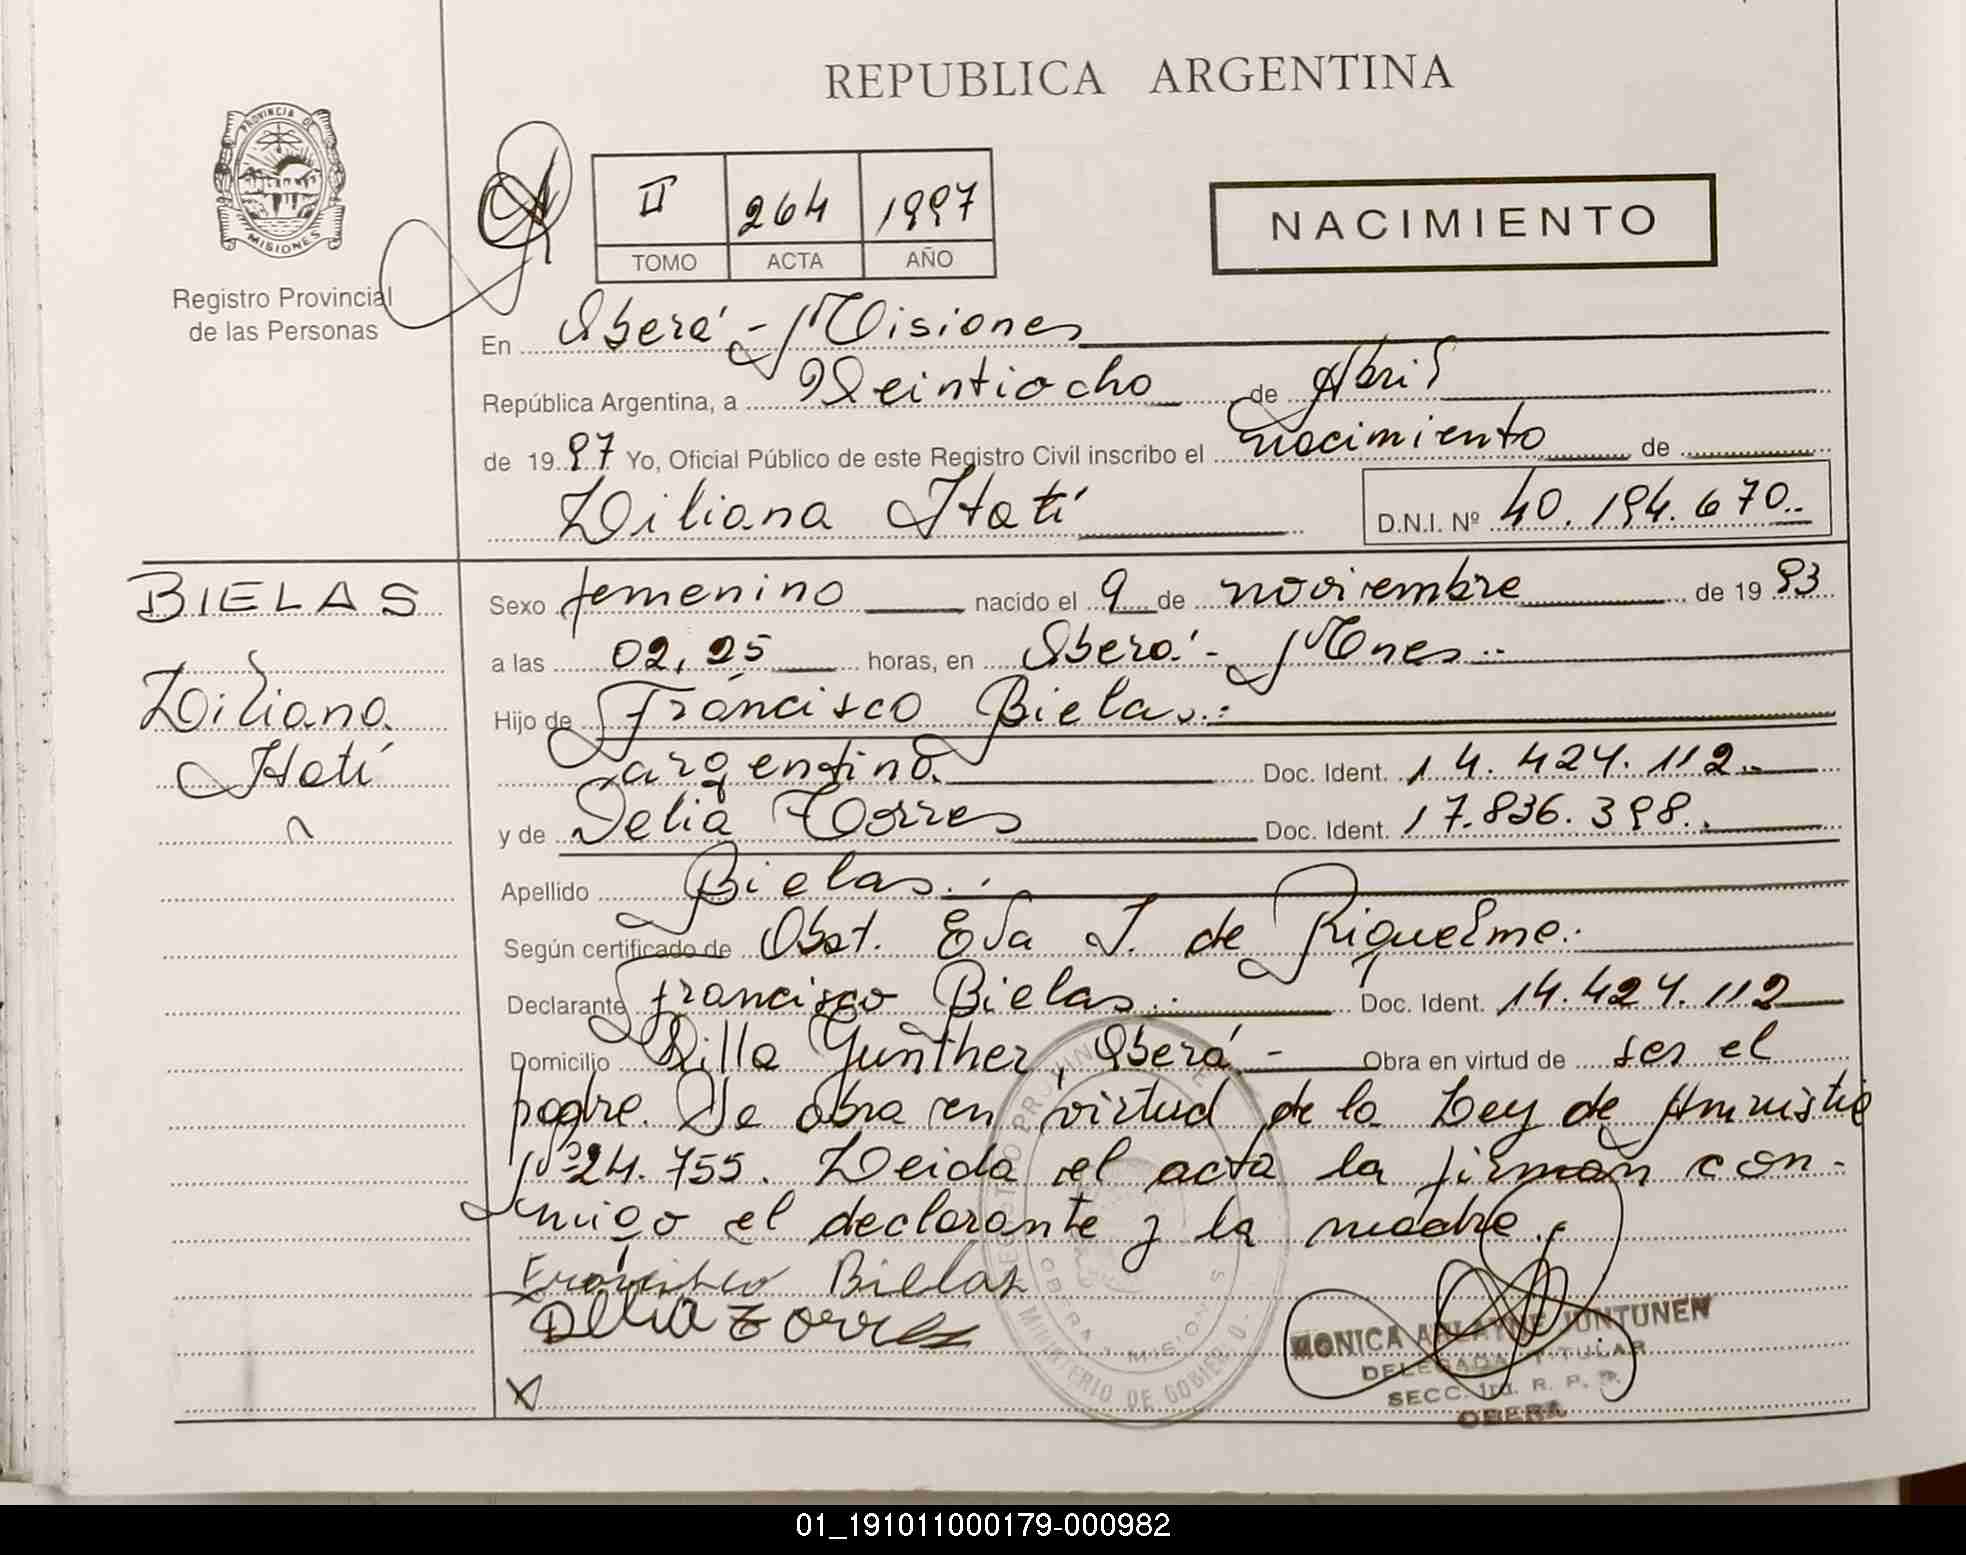 REPUBLICA ARGENTINA
PROVINCIA DE MISIONES
Registro Provincial
de las Personas
II 264 1997
TOMO ACTA AÑO
NACIMIENTO
En Oberá - Misiones
República Argentina, a Veintiocho de Abril
de 1997 Yo, Oficial Público de este Registro Civil inscribo el nacimiento de
Liliana Itatí D.N.I. Nº 40.194.670..
BIELAS
Liliana
Itatí
Sexo femenino nacido el 9 de noviembre de 1993
a las 02,25 horas, en Oberá - Mnes..
Hijo de Francisco Bielas.:
argentino. Doc. Ident. 14.424.112..
y de Delia Torres Doc. Ident. 17.836.398..
Apellido Bielas.:
Según certificado de Obst. Eva J. de Riquelme.:
Declarante Francisco Bielas.: Doc. Ident. 14.424.112
Domicilio Villa Gunther, Oberá - Obra en virtud de ser el
padre. Se obra en virtud de la Ley de Amnistia
Nº 24.755. Leida el acta la firman con-
migo el declarante y la madre.
Francisco Bielas
Delia Torres
REGISTRO PROVINCIAL DE
OBERA MISIONES
MINISTERIO DE GOBIERNO
MONICA ARLAINE JUNTUNEN
DELEGADA TITULAR
SECC. 1ra. R. P. P.
OBERA
X
01_191011000179-000982